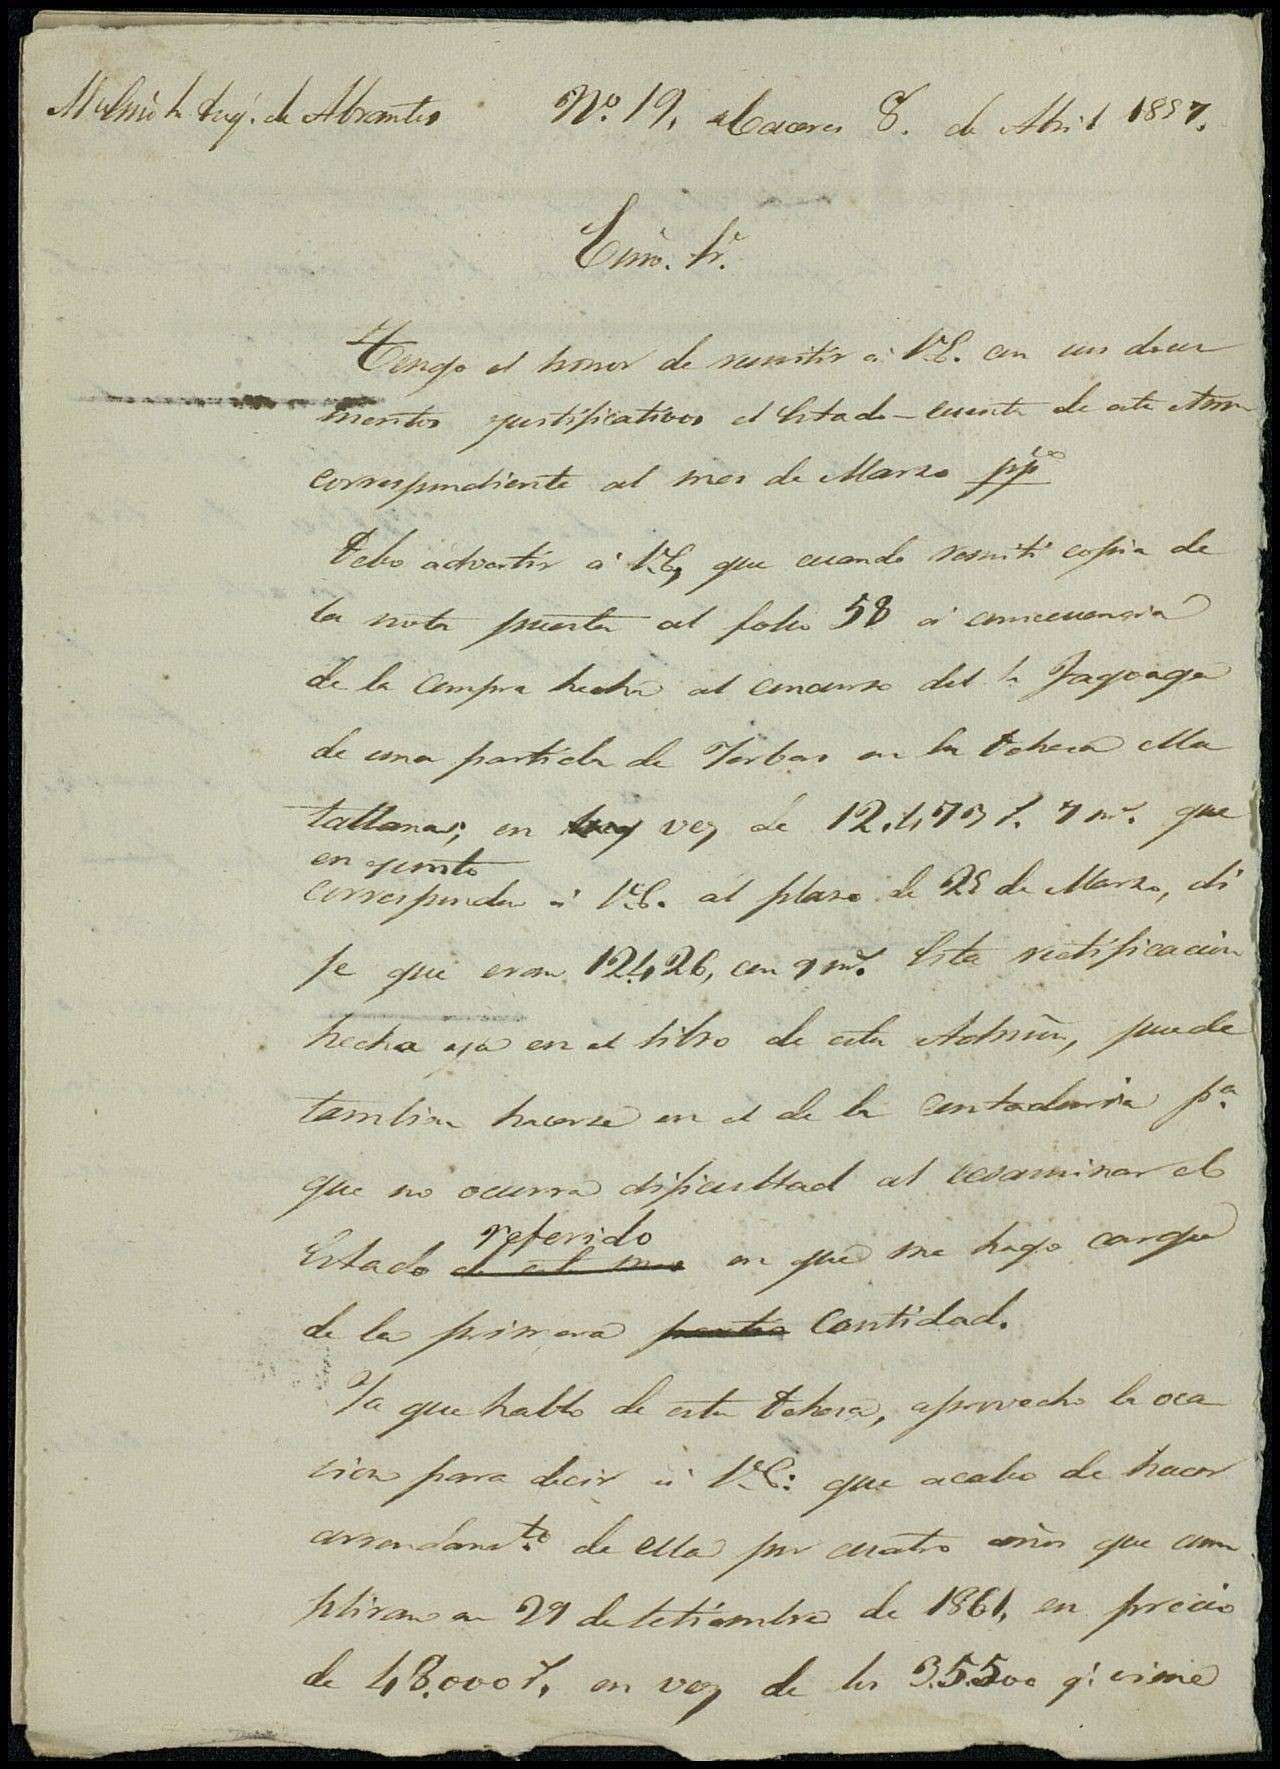 Al Exmo Sr Duq. de Abrantes Nº. 19. Caceres 8. de Abril 1857.
Exmo. Sr.
Tengo el honor de remitir á V.E. con sus docu
mentos justificativos el Estado-cuenta de esta Admon
correspondiente al mes de Marzo pp.do
Debo advertir á V.E., que cuando remití copia de
la nota puesta al folio 58 á consecuencia
de la compra hecha al concurso del Sr Jagoaga
de una partida de Yerbas en la dehesa Ma
tallana, en vez de 12.473 r. 7 ms. que
en junto
corresponden á V.E. al plazo de 25 de Marzo, di
je que eran 12.426, con 9 ms. Esta rectificacion
hecha ya en el libro de esta Admon, puede
tambien hacerse en el de la Contaduria pa.
que no ocurra dificultad al ecsaminar el
referido
Estado de este mes en que me hago cargo
de la primera partida Cantidad.
Ya que hablo de esta dehesa, aprovecho la oca
sion para decir á V.E. que acabo de hacer
arrendamto. de ella por cuatro años que cum
pliran en 29 de Setiembre de 1861, en precio
de 48.000 r. en vez de los 35.500 q.e viene